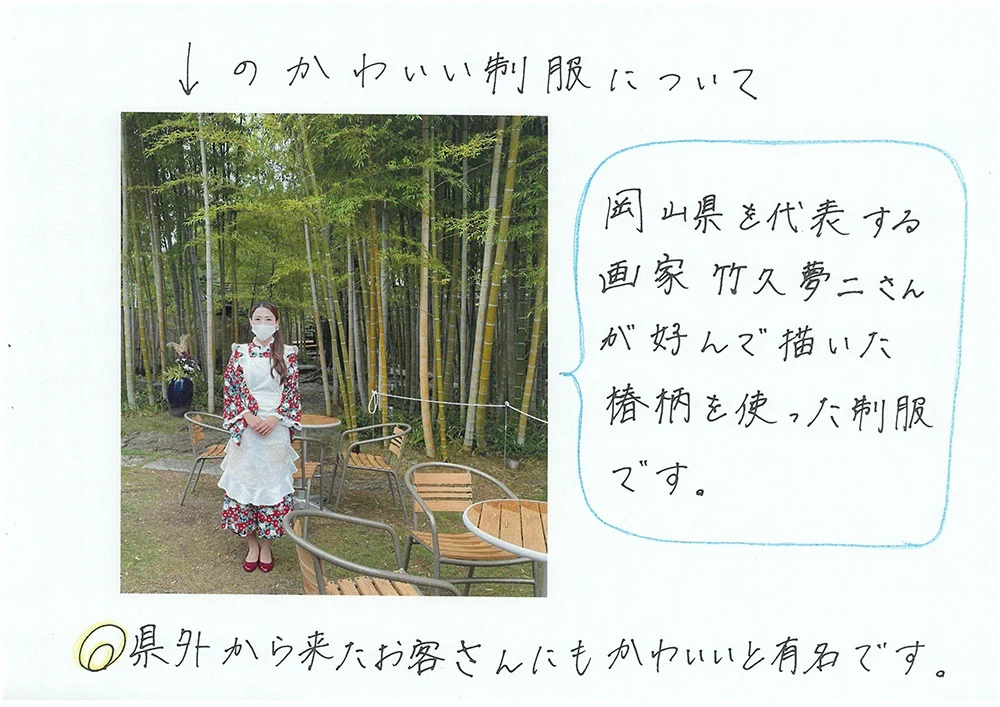 ↓のかわいい制服について
岡山県を代表する
画家 竹久夢二さん
が好んで描いた
椿柄を使った制服
です。
◎県外から来たお客さんにもかわいいと有名です。